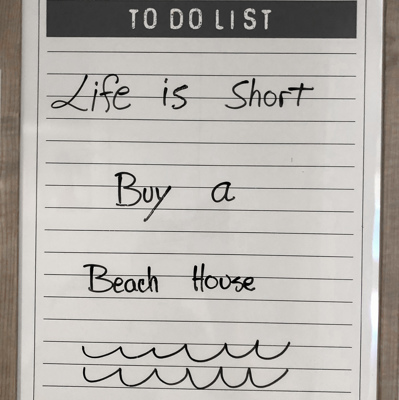 TO DO LIST
Life is Short
Buy a
Beach House